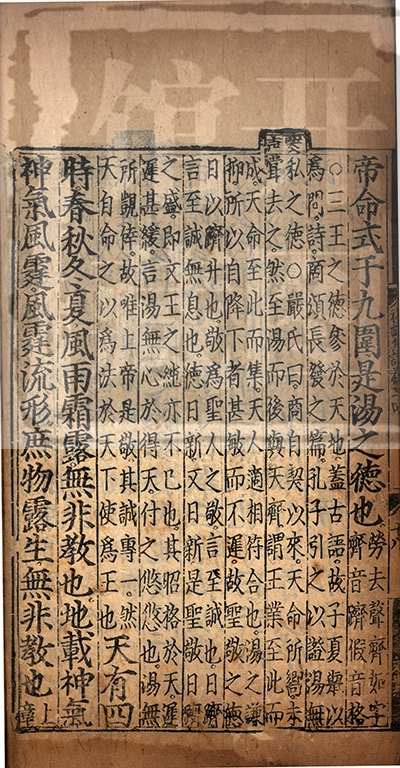 帝命式于九圍是湯之德也
勞去聲齊如字
齊音躋假音格
○三王之德參於天地蓋古語故子夏舉以
爲問詩商頌長發之篇孔子引之以證湯無
私之德○嚴氏曰商自契以來天命所嚮未
嘗去之然至湯而後與天齊謂王業至此而
成天命至此而集天人適相符合也湯之謙
抑所以自降下者甚敏而不遲故聖敬之德
日以躋升也敬爲聖人之敬言至誠也日躋
言至誠無息也德日新又日新是聖敬日躋
之盛即文王之純亦不已也其昭格於天遲
遲甚緩言湯無心於得天付之悠悠也湯無
所覬倖故唯上帝是敬其誠專一然
天自命之以爲法於天下使爲王也
天有四
時春秋冬夏風雨霜露無非教也地載神氣
神氣風霆風霆流形庶物露生無非教也
上
章